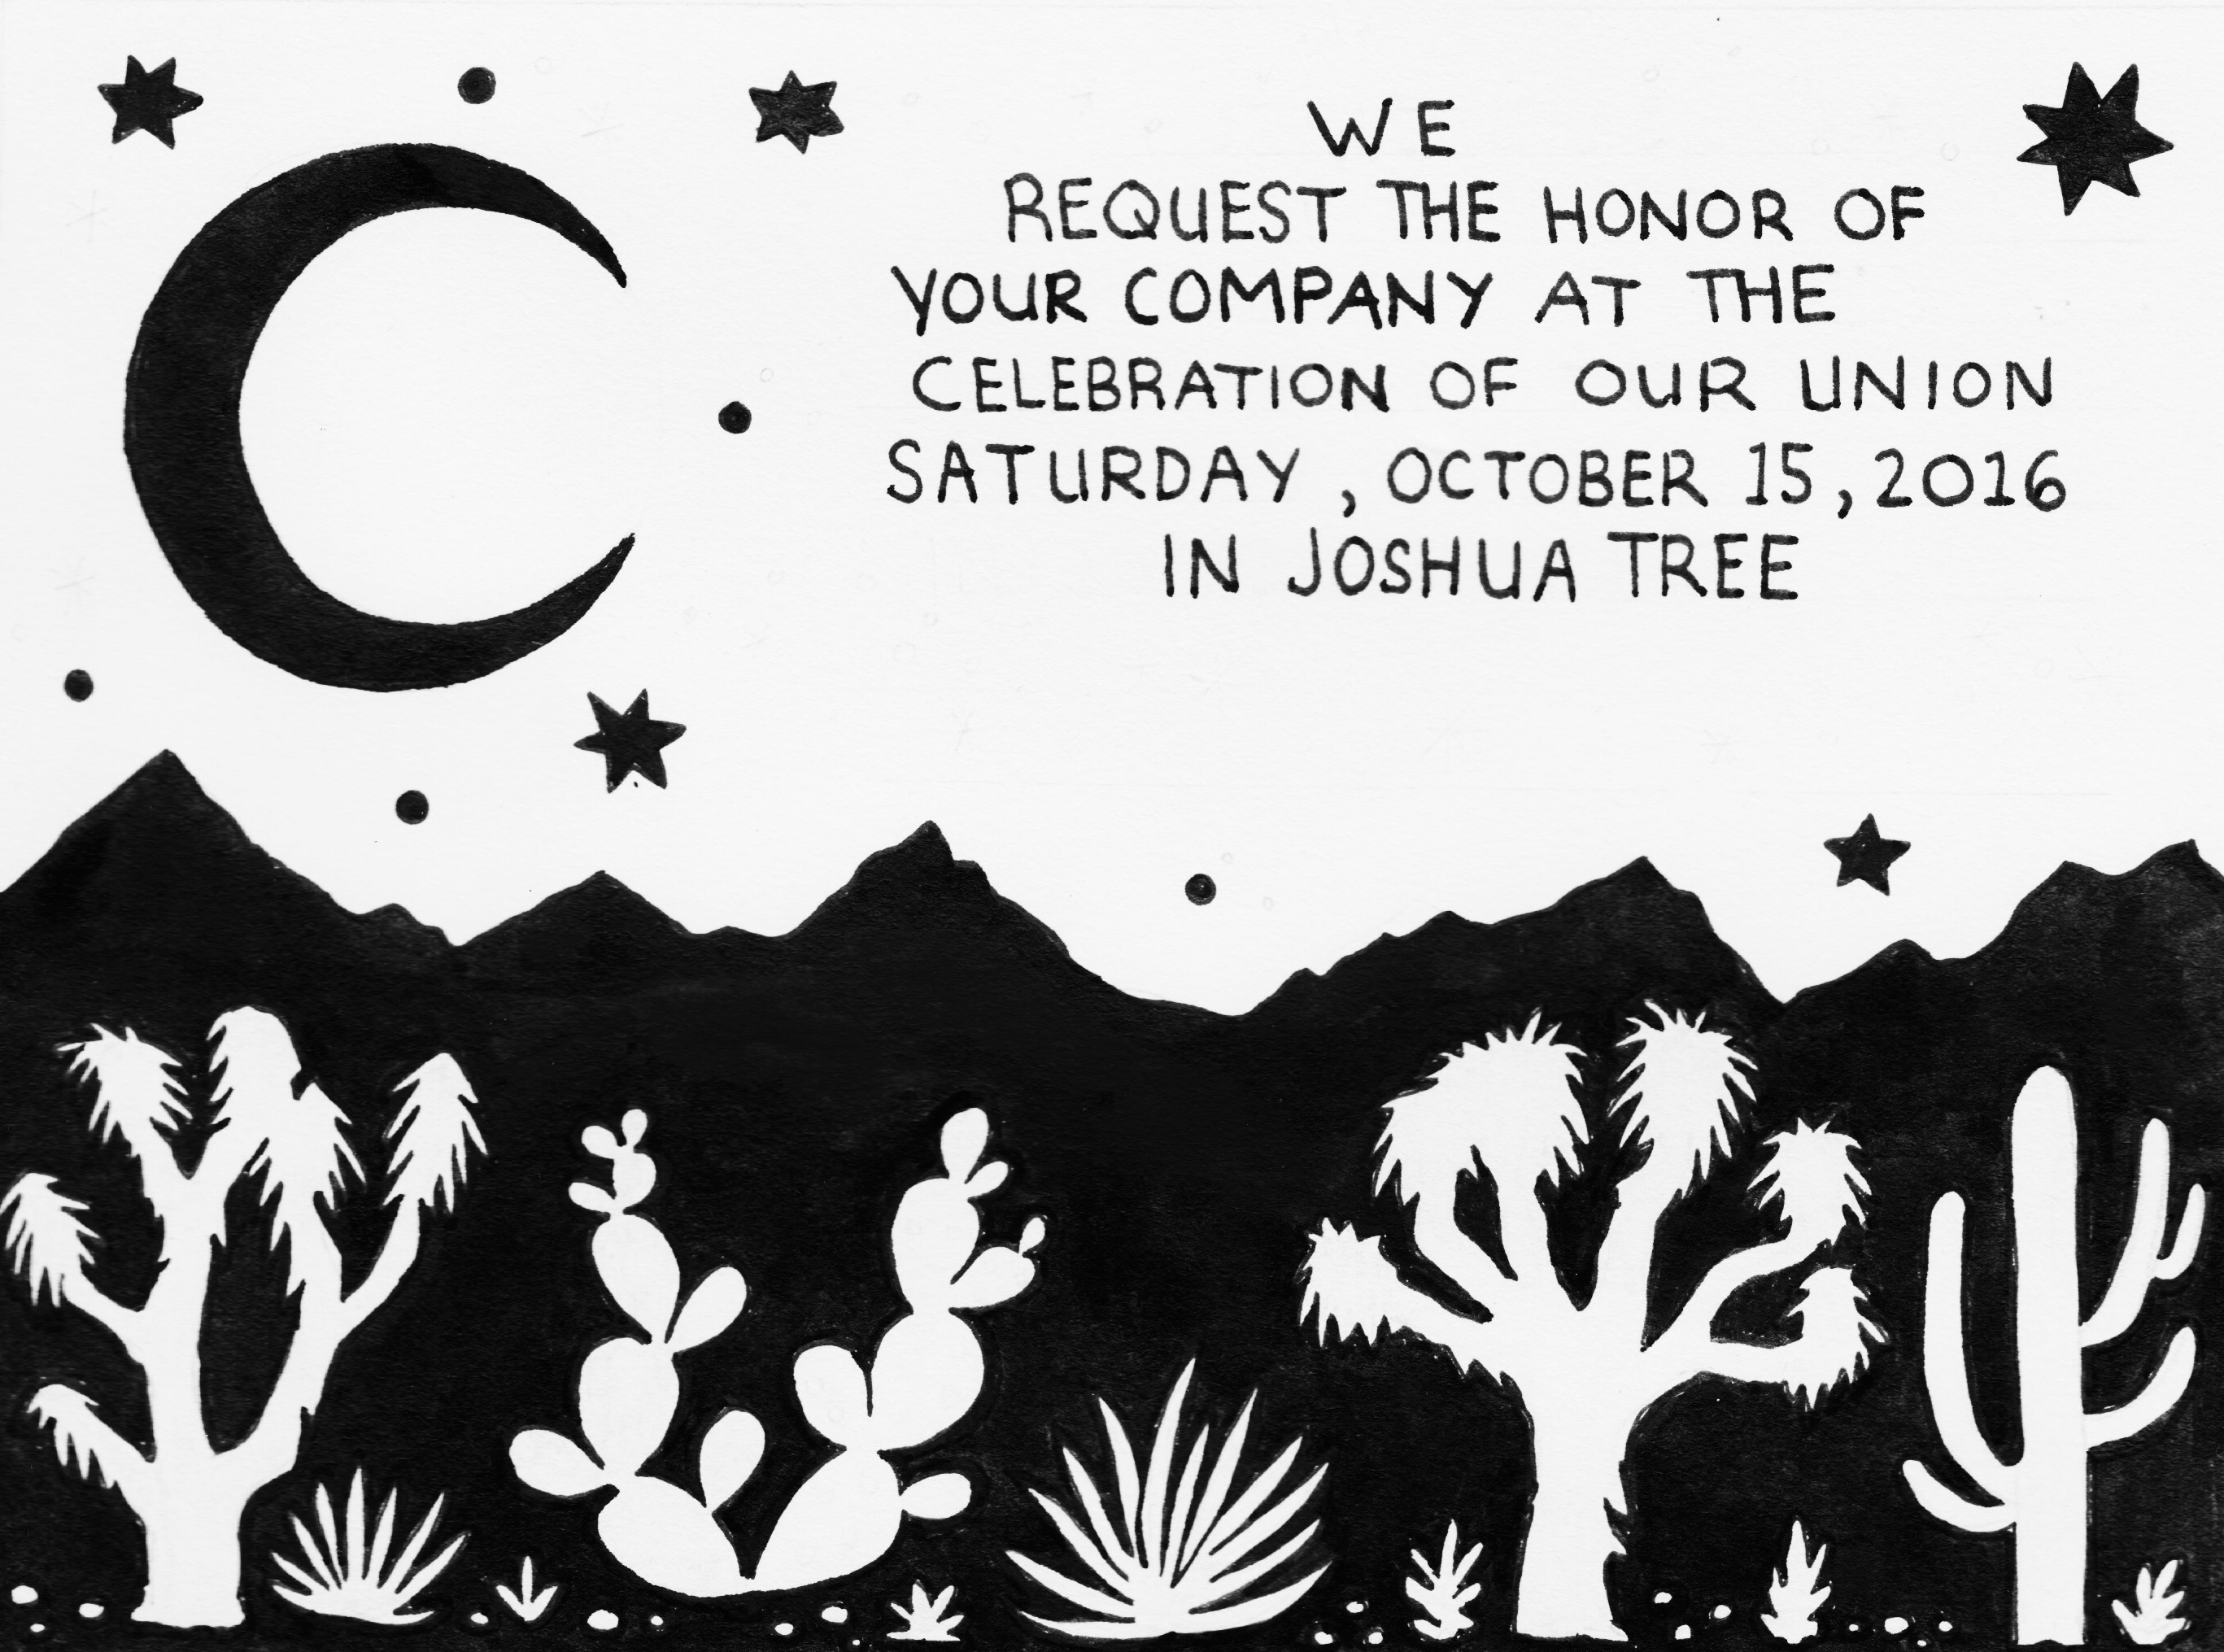 WE
REQUEST THE HONOR OF
YOUR COMPANY AT THE
CELEBRATION OF OUR UNION
SATURDAY, OCTOBER 15, 2016
IN JOSHUA TREE